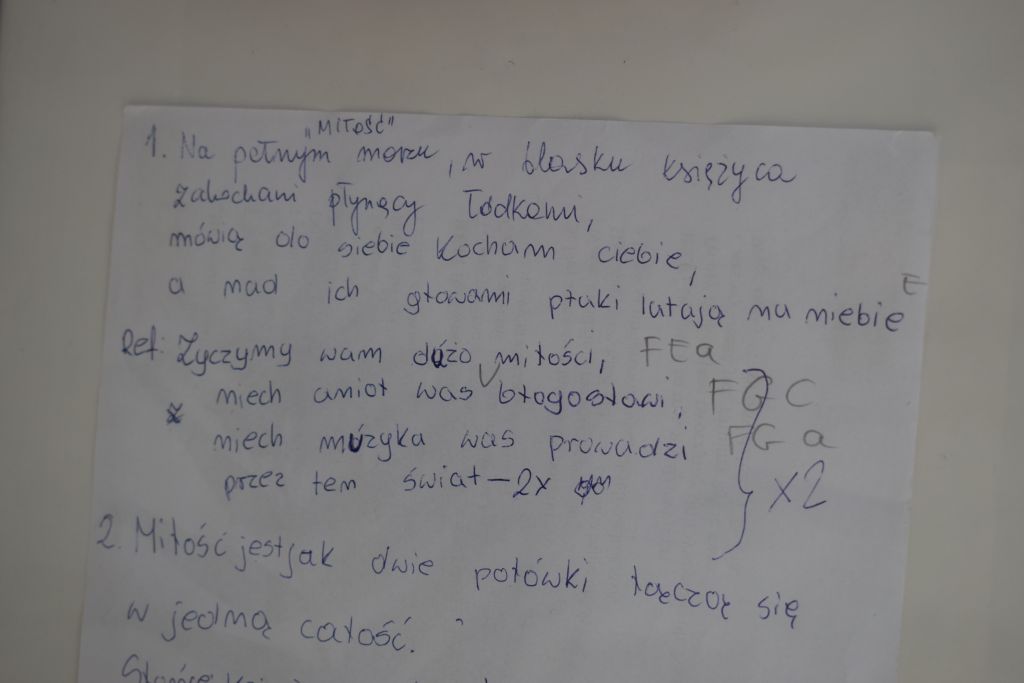 "MIŁOŚĆ"
1. Na pełnym morzu, w blasku księżyca
zakochani płynący łódkami,
mówią do siebie kocham ciebie,
a nad ich głowami ptaki latają na niebie E
Ref: Życzymy wam dużo miłości, F E a
niech anioł was błogosławi, F G C
niech muzyka was prowadzi F G a
przez ten świat - 2x
x2
2. Miłość jest jak dwie połówki łączą się
w jedną całość.